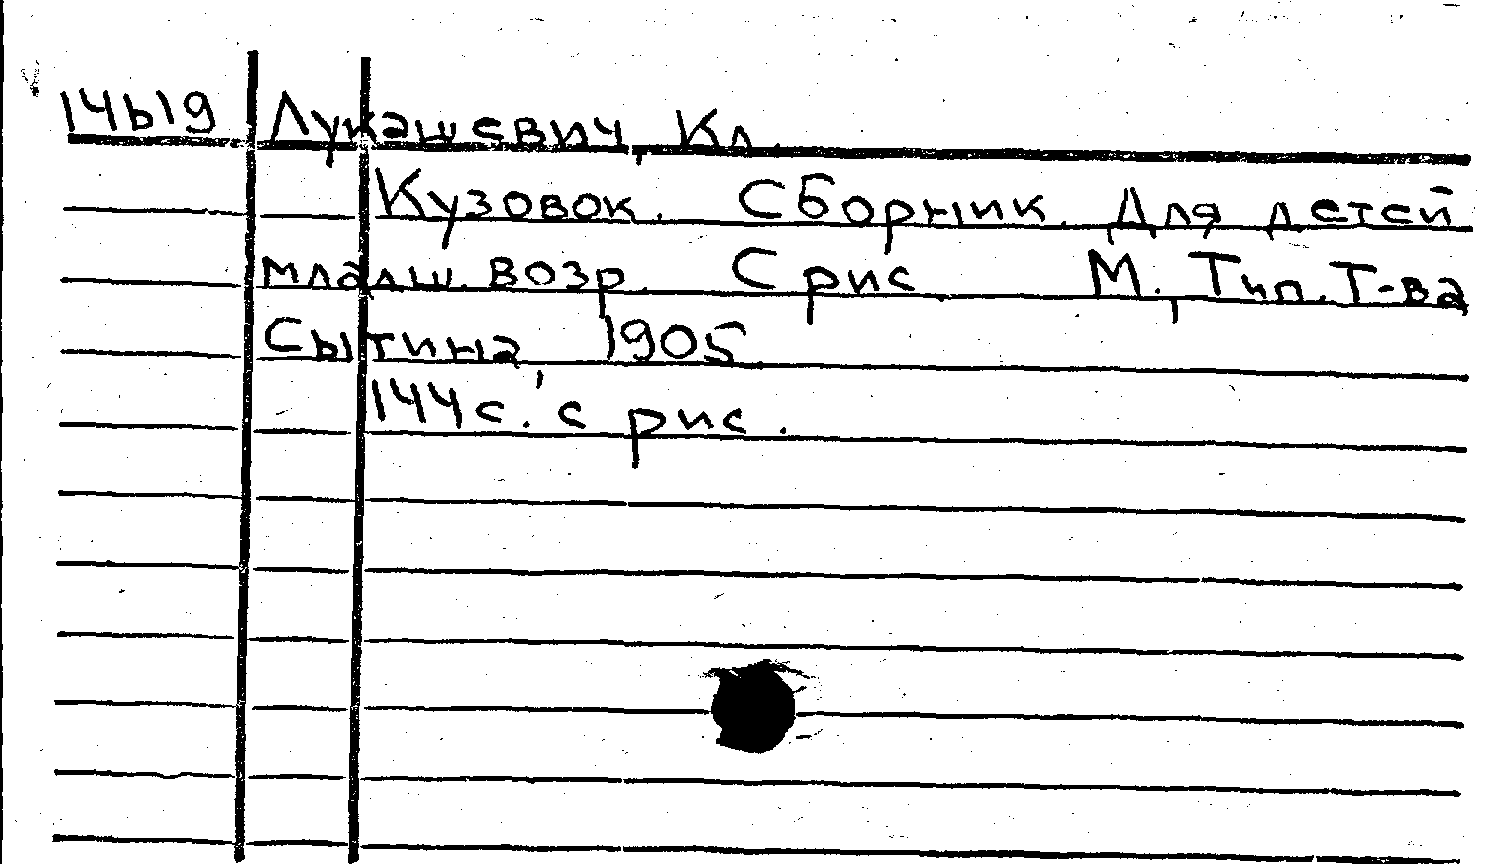 14619 Лукашевич, Кл.
Кузовок. Сборник. Для детей
младш. возр. С рис. М., Тип. Т-ва
Сытина, 1905.
144 с. с рис.